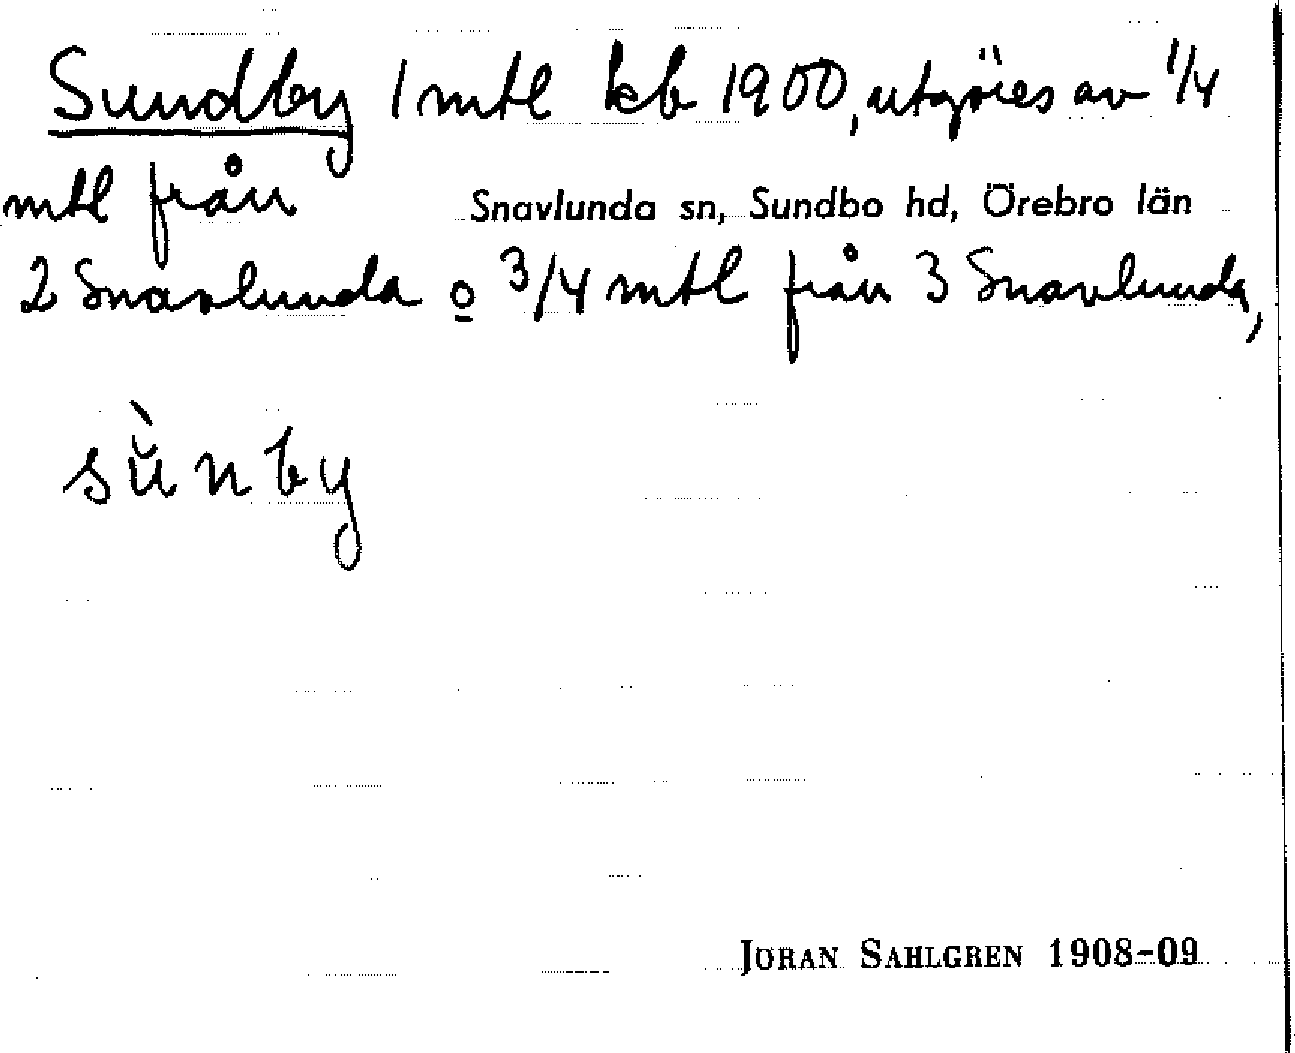 Sundby 1 mtl kb 1900, utgöres av 1/4
mtl från
Snavlunda sn, Sundbo hd, Örebro län
2 Snavlunda o 3/4 mtl från 3 Snavlunda,
sùnby
JÖRAN SAHLGREN 1908-09